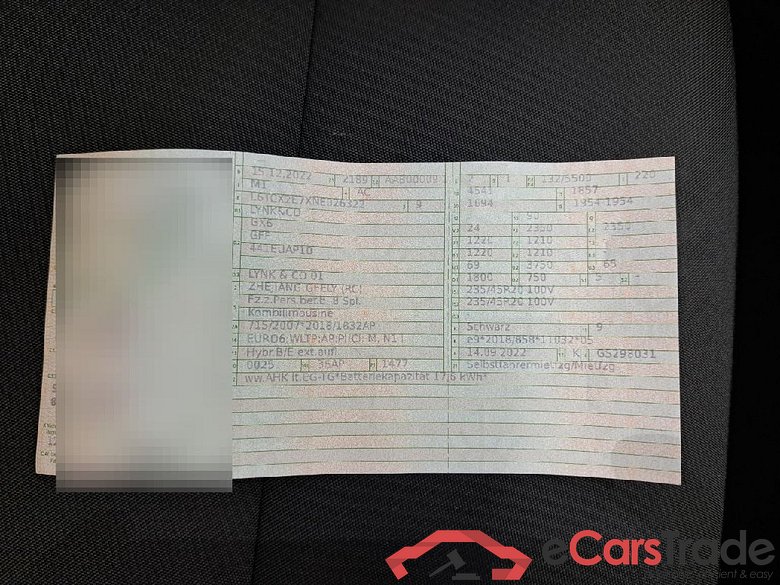 15.12.2022 2189 AAB00009 2 1 132/5500 220
M1 AC 4541 1857
9 1694 1954-1954
LYNK&CO 90
GX6 24 2350 2350
GFF 1220 1210
44TEJAP10 1220 1210
69 3750 65
LYNK & CO 01 1800 750 5 -
ZHEJIANG GEELY (RC) 235/45R20 100V
Fz.z.Pers.bef.b. 8 Spl. 235/45R20 100V
Kombilimousine -
715/2007*2018/1832AP Schwarz 9
EURO6;WLTP;AP;PI/CI; M, N1 I e9*2018/858*11032*05
Hybr.B/E ext.aufl 14.09.2022 K GS298031
0025 36AP 1477 Selbstfahrermietfzg/Mietfzg
ww.AHK lt.EG-TG*Batteriekapazität 17,6 kWh*
eCarsTrade
& easy